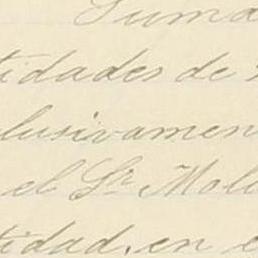 Suma
tidades de
lusivamen
el Sr. Moli
tidad, en e